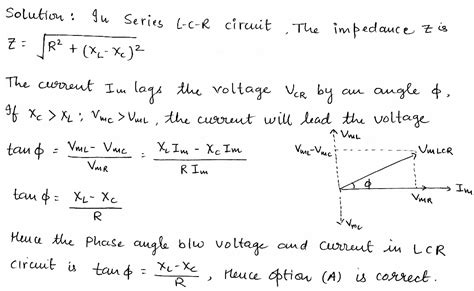 Solution : In Series L-C-R circuit , The impedance Z is
Z = √R² + (X_L - X_C)²
The current Im lags the voltage V_CR by an angle ϕ,
If X_C > X_L ; V_mC > V_mL , the current will lead the voltage
tan ϕ = (V_mL - V_mC) / V_mR = (X_L I_m - X_C I_m) / (R I_m)
V_mL
V_mL - V_mC
V_mLCR
ϕ
I_m
V_mR
V_mL
tan ϕ = (X_L - X_C) / R
Hence the Phase angle b/w voltage and current in LCR
circuit is tan ϕ = (X_L - X_C) / R , Hence option (A) is correct.